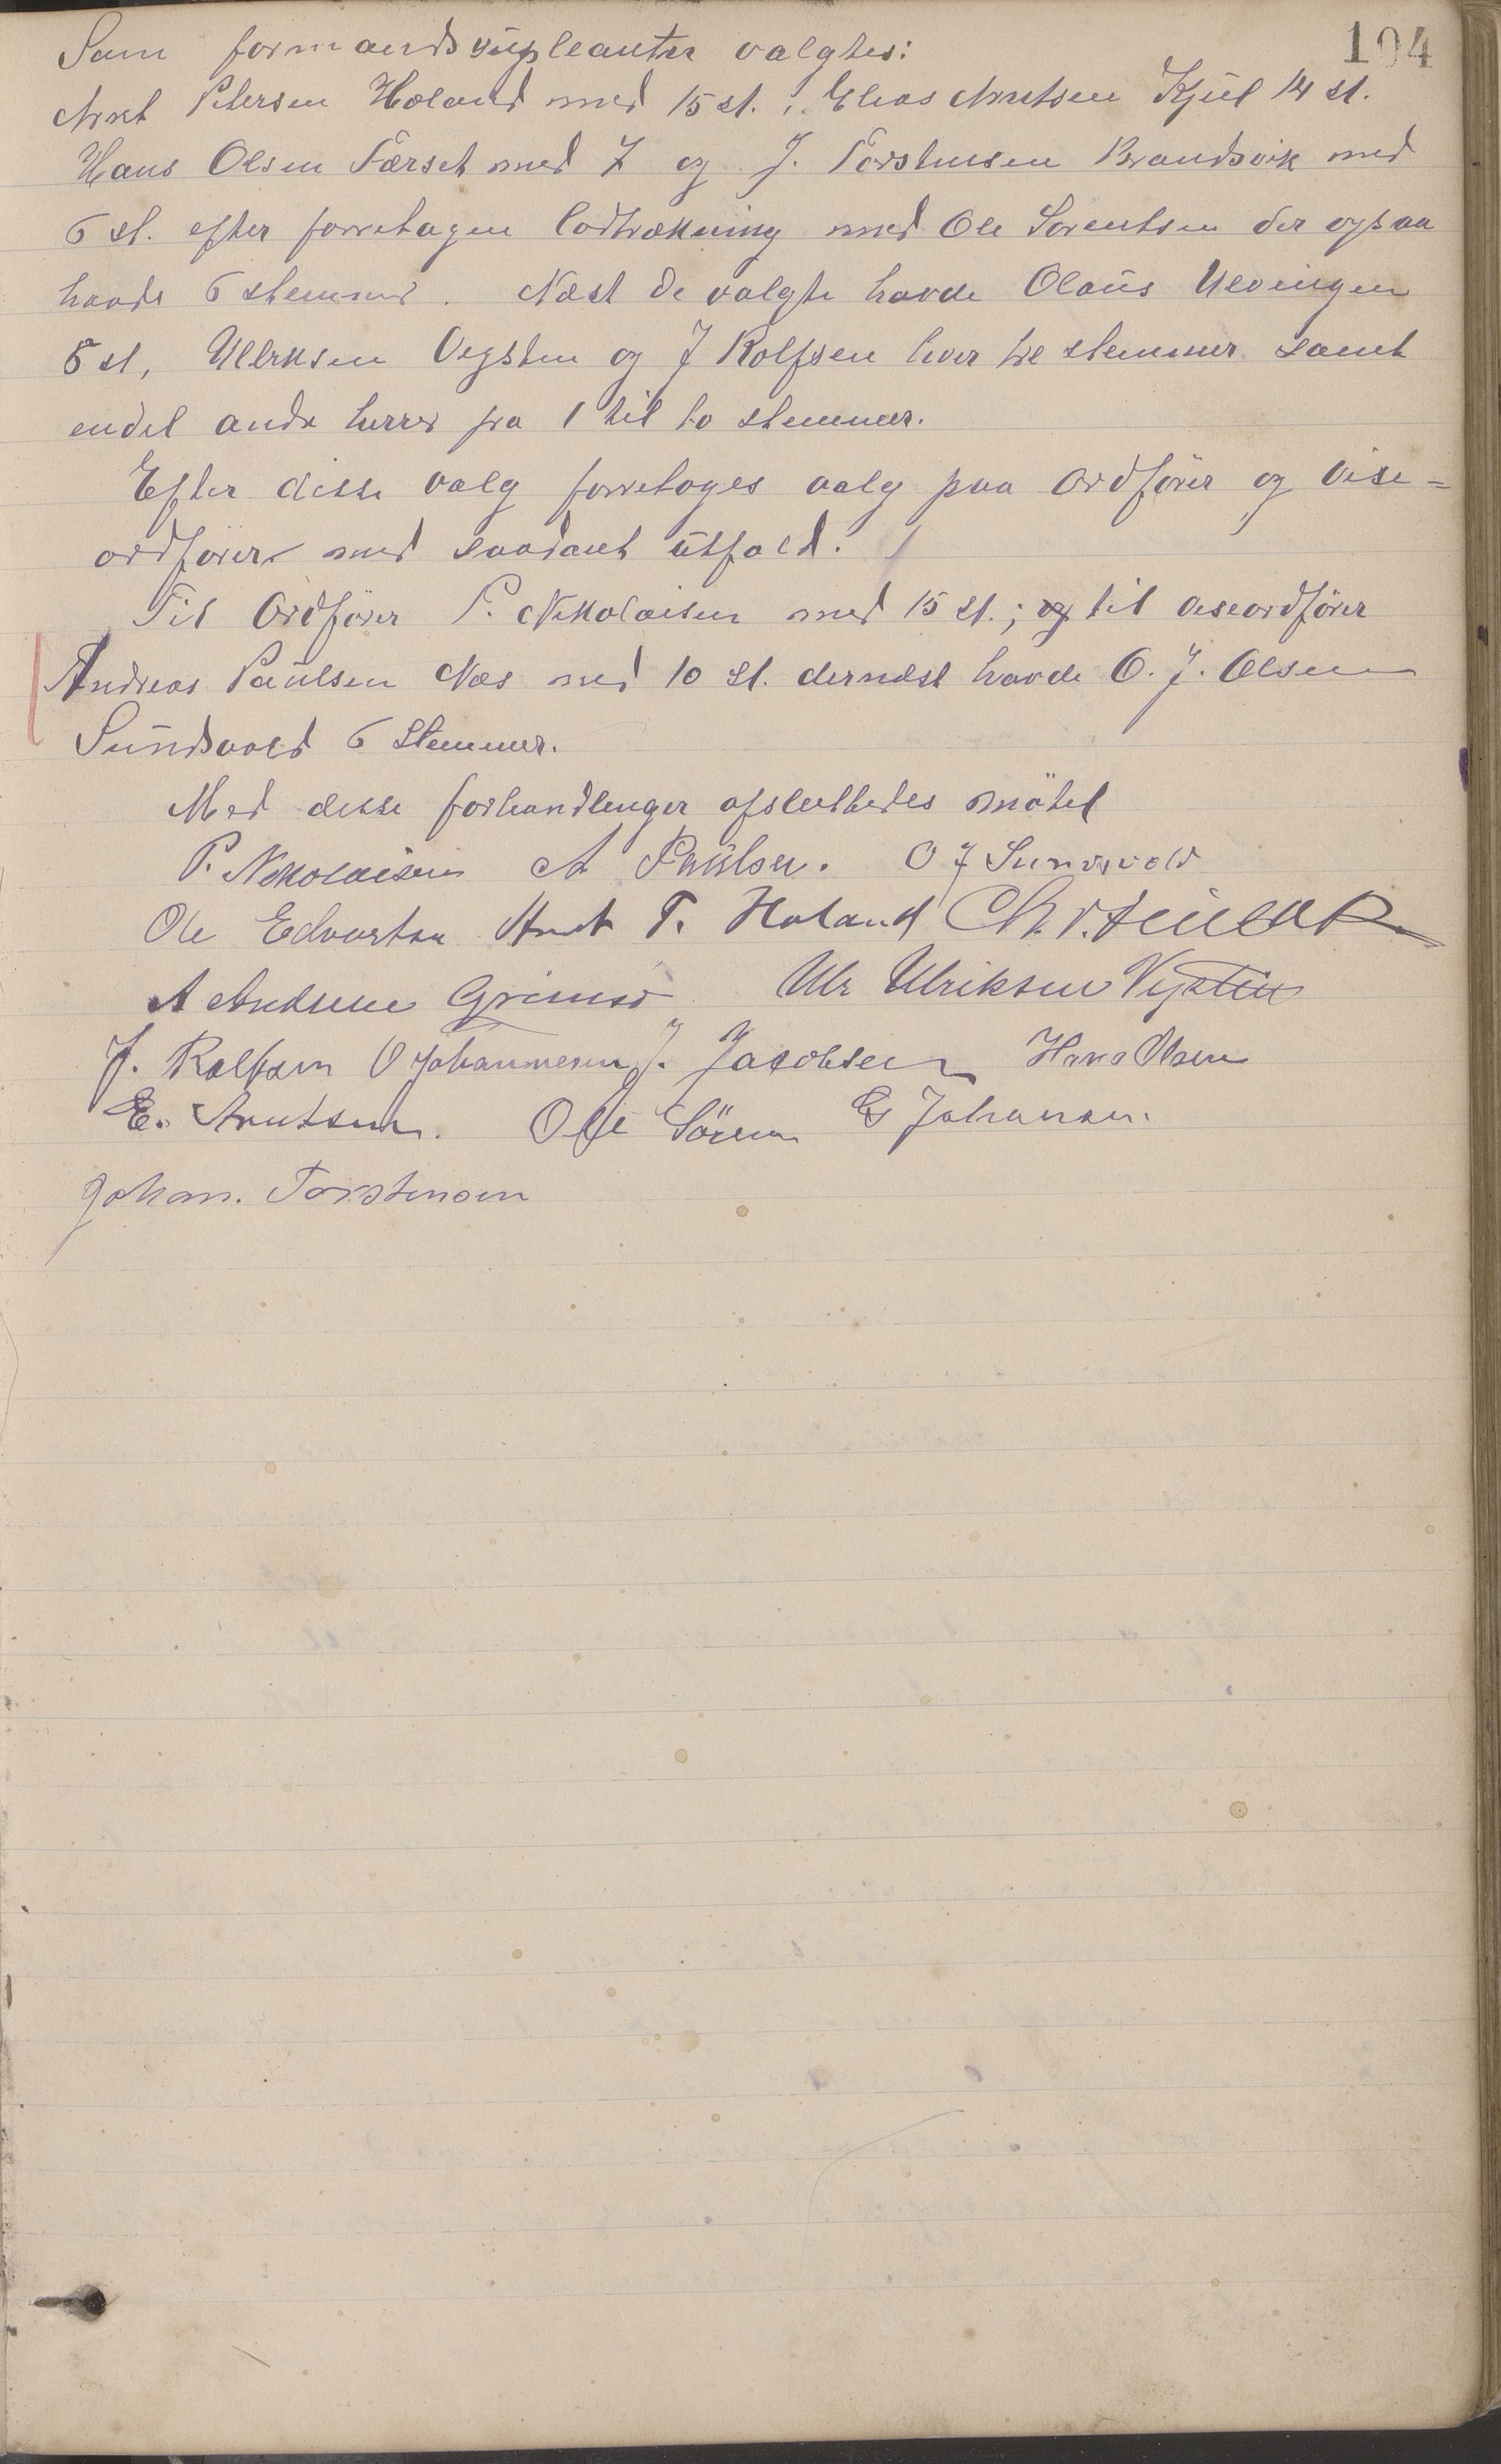 104
Som formandssupleanter valgtes:
Arnt Petersen Høland med 15 st., Elias Arntsen Kjul 14 st.
Hans Olsen Færset med 7 og J. Torstensen Brandsvik med
6 st. efter forretagen lodtrækning med Ole Sørentsen der ogsaa
havde 6 stemmer. Næst de valgte havde Olaus Ulvingen
5 st, Ulleriksen Vegsten og J Rolfsen hver tre stemmer samt
endel andre herrer fra 1 til to stemmer.
Efter disse valg forretoges valg paa Ordfører og vise-
ordfører med saadant utfald.
Til Ordfører P. Nikolaisen med 15 st.; og til viseordfører
Andreas Paulsen Næs med 10 st. dernæst havde O. J. Olsen
Sundsvold 6 stemmer.
Med disse forhandlinger afsluttedes mötet
P. Nikolaisen A Paulsen. O J Sundsvold
Ole Edvartsen Arnt P. Høland Chr.
A Andersen Grimsö Ulr Ulriksen Vegsten
J. Rolfsen O Johannesen J. Jacobsen Hans Olsen
E. Arntsen. Ole Sören E Johansen.
Johan. Torstensen